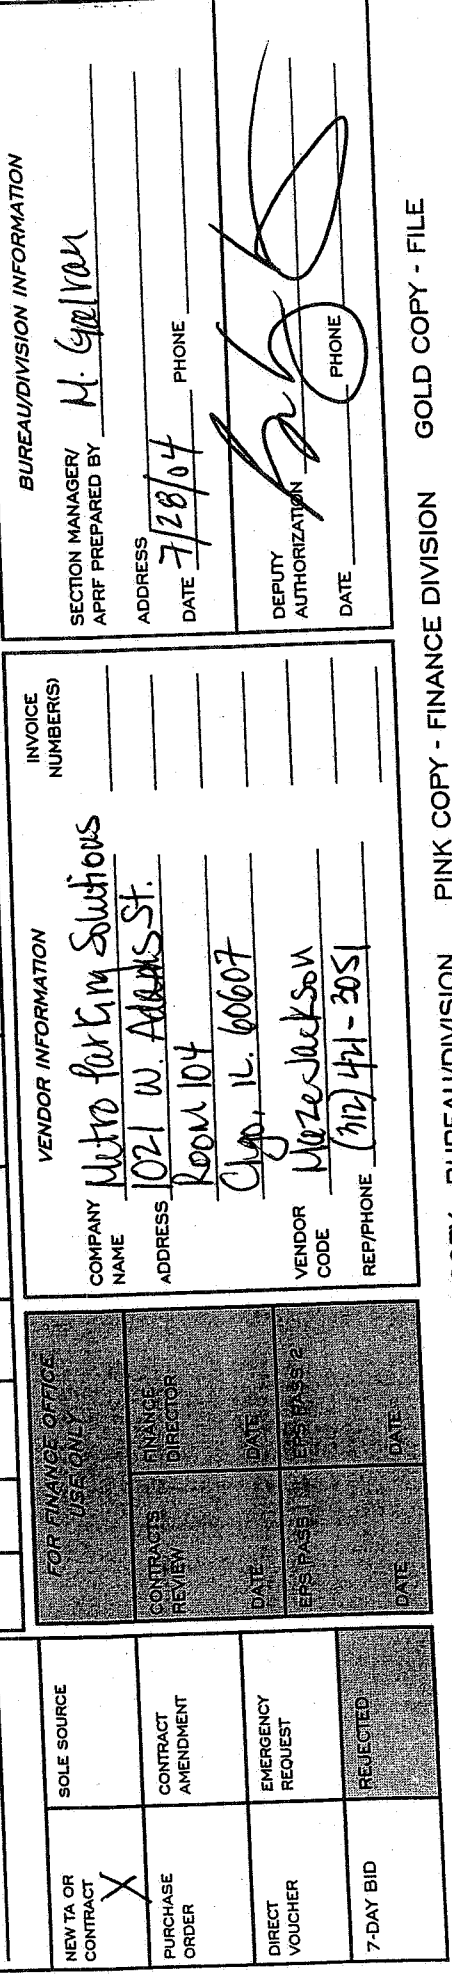 NEW TA OR CONTRACT X
SOLE SOURCE
PURCHASE ORDER
CONTRACT AMENDMENT
DIRECT VOUCHER
EMERGENCY REQUEST
7-DAY BID
REJECTED
FOR FINANCE OFFICE
USE ONLY
CONTRACTS REVIEW
DATE
FINANCE DIRECTOR
DATE
EPS PASS 1
DATE
EPS PASS 2
DATE
VENDOR INFORMATION
INVOICE NUMBER(S)
COMPANY NAME Metro Parking Solutions
ADDRESS 1021 W. Adams St.
Room 104
Chgo, IL. 60607
VENDOR CODE Maze Jackson
REP/PHONE (312) 421-3051
BUREAU/DIVISION INFORMATION
SECTION MANAGER/
APRF PREPARED BY M.
ADDRESS
DATE 7/28/04 PHONE
DEPUTY
AUTHORIZATION
DATE PHONE
COPY - BUREAU/DIVISION PINK COPY - FINANCE DIVISION GOLD COPY - FILE